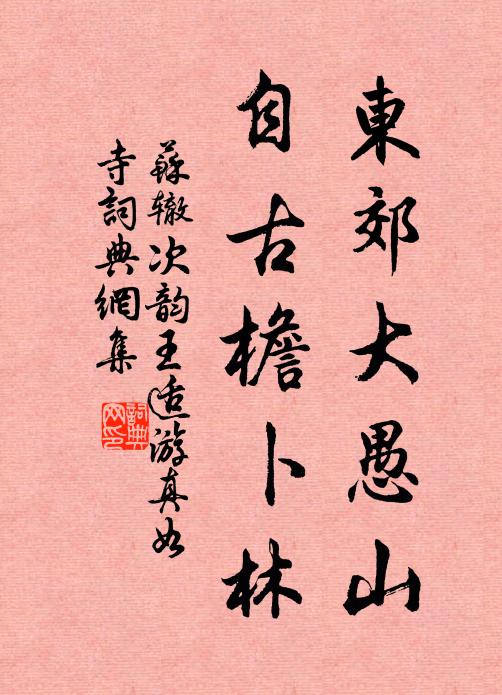 東郊大愚山
自古檐卜林
蘇辙次韵王适游真如
寺詞典網集
詞典網印